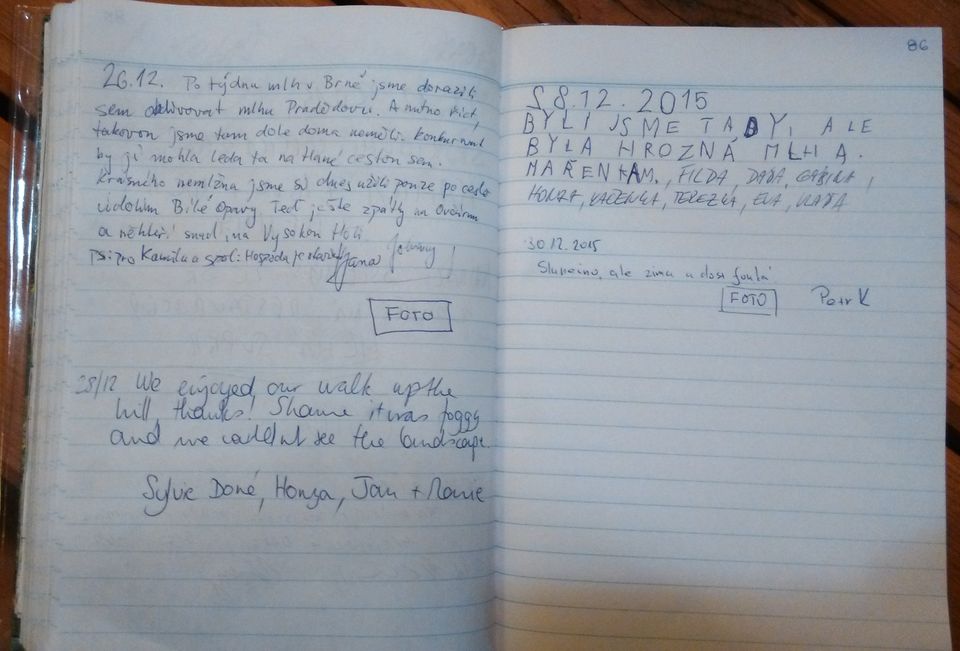 26.12. Po týdnu mlh v Brně jsme dorazili
sem obdivovat mlhu Pradědovu. A nutno říct,
takovou jsme tam dole doma neměli. Konkurovat
by jí mohla leda ta na Hané cestou sem.
Krásného nemlžna jsme si dnes užili pouze po cestě
údolím Bílé Opavy. Teď ještě zpátky na Ovčárnu
a mlhu snad na Vysokou Holi
ps: pro Kamilu a spol: Hospoda je Jana
FOTO
28/12 We enjoyed our walk up the
hill, thanks! Shame it was foggy
and we couldn't see the landscape.
Sylvie Doné, Honza, Jan + Marie
86
28.12.2015
BYLI JSME TADY, ALE
BYLA HROZNÁ MLHA.
MAŘENKA M., FILDA, DAĎA, GABINA,
HONZA, KAČENKA, TEREZKA, EVA, VLAĎA
30.12.2015
Sluneíno, ale zima a dost fouká
FOTO Petr K